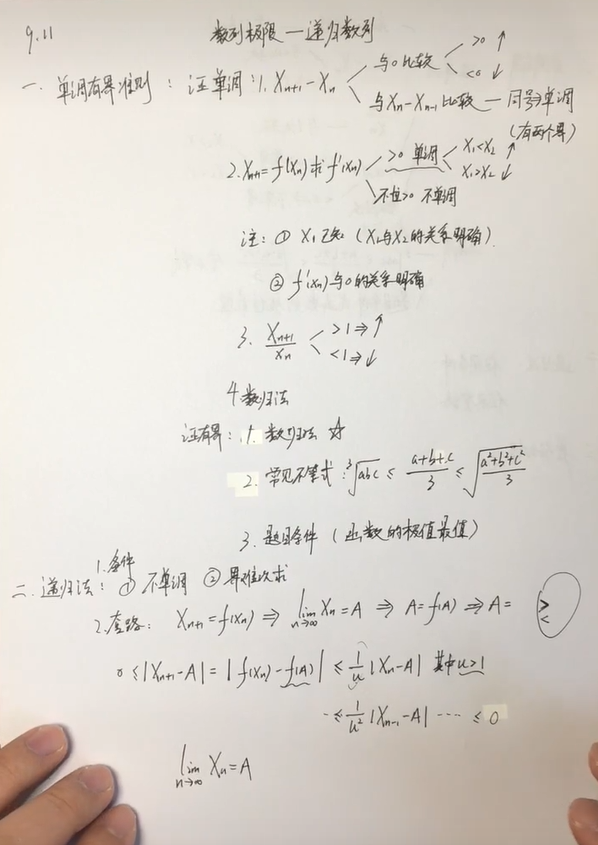 9.11
数列极限—递归数列
一. 单调有界准则: 证单调: 1. Xn+1-Xn 与0比较 >0 ↑
<0 ↓
与Xn-Xn-1比较 — 同号⇒单调
(有两个界)
2. Xn+1=f(Xn)求f'(Xn) >0 单调 X1<X2 ↑
X1>X2 ↓
不恒>0 不单调
注: ① X1已知 (X1与X2的关系明确)
② f'(Xn)与0的关系明确
3. Xn+1/Xn >1⇒↑
<1⇒↓
4.数归法
证有界: 1. 数归法 ☆
2. 常见不等式: ∛abc ≤ (a+b+c)/3 ≤ √((a²+b²+c²)/3)
3. 题目条件 (函数的极值最值)
1.条件
二. 递归法: ① 不单调 ② 界难以求
2.套路: Xn+1=f(Xn) ⇒ lim n→∞ Xn=A ⇒ A=f(A) ⇒ A= > <
0≤|Xn+1-A|=|f(Xn)-f(A)| ≤ 1/u |Xn-A| 其中u>1
≤ 1/u² |Xn-1-A| ···· ≤ 0
lim n→∞ Xn=A